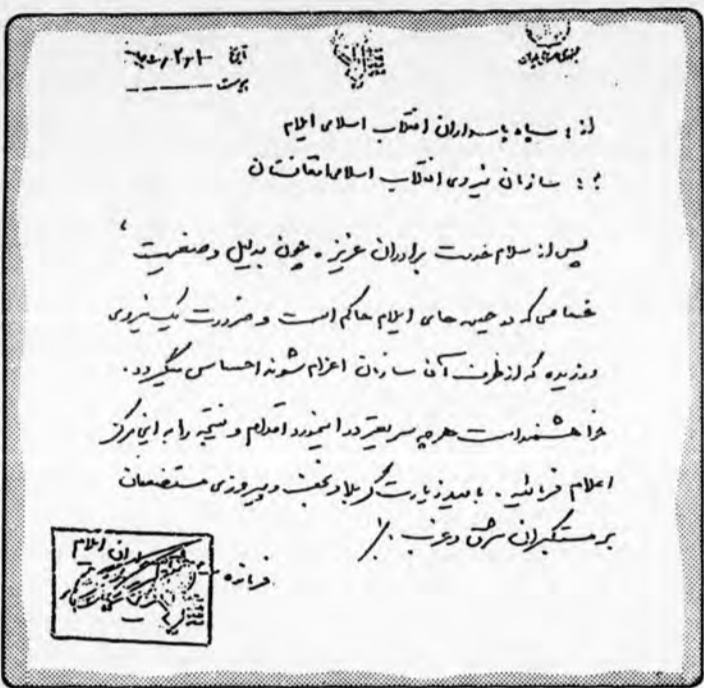 جمهوری اسلامی ایران
تاریخ
پیوست
از : سپاه پاسداران انقلاب اسلامی ایلام
به : سازمان نیروی انقلاب اسلامی افغانستان
پس از سلام خدمت برادران عزیز . چون بدلیل وضعیت
خاصی که در جبهه های ایلام حاکم است و ضرورت یک نیروی
ورزیده که از طرف آن سازمان اعزام شوند احساس میگردد .
خواهشمند است هر چه سریعتر در اینمورد اقدام و نتیجه را به این مرکز
اعلام فرمائید . بامید زیارت کربلا و نجف و پیروزی مستضعفان
بر مستکبران شرق و غرب ./
فرمانده